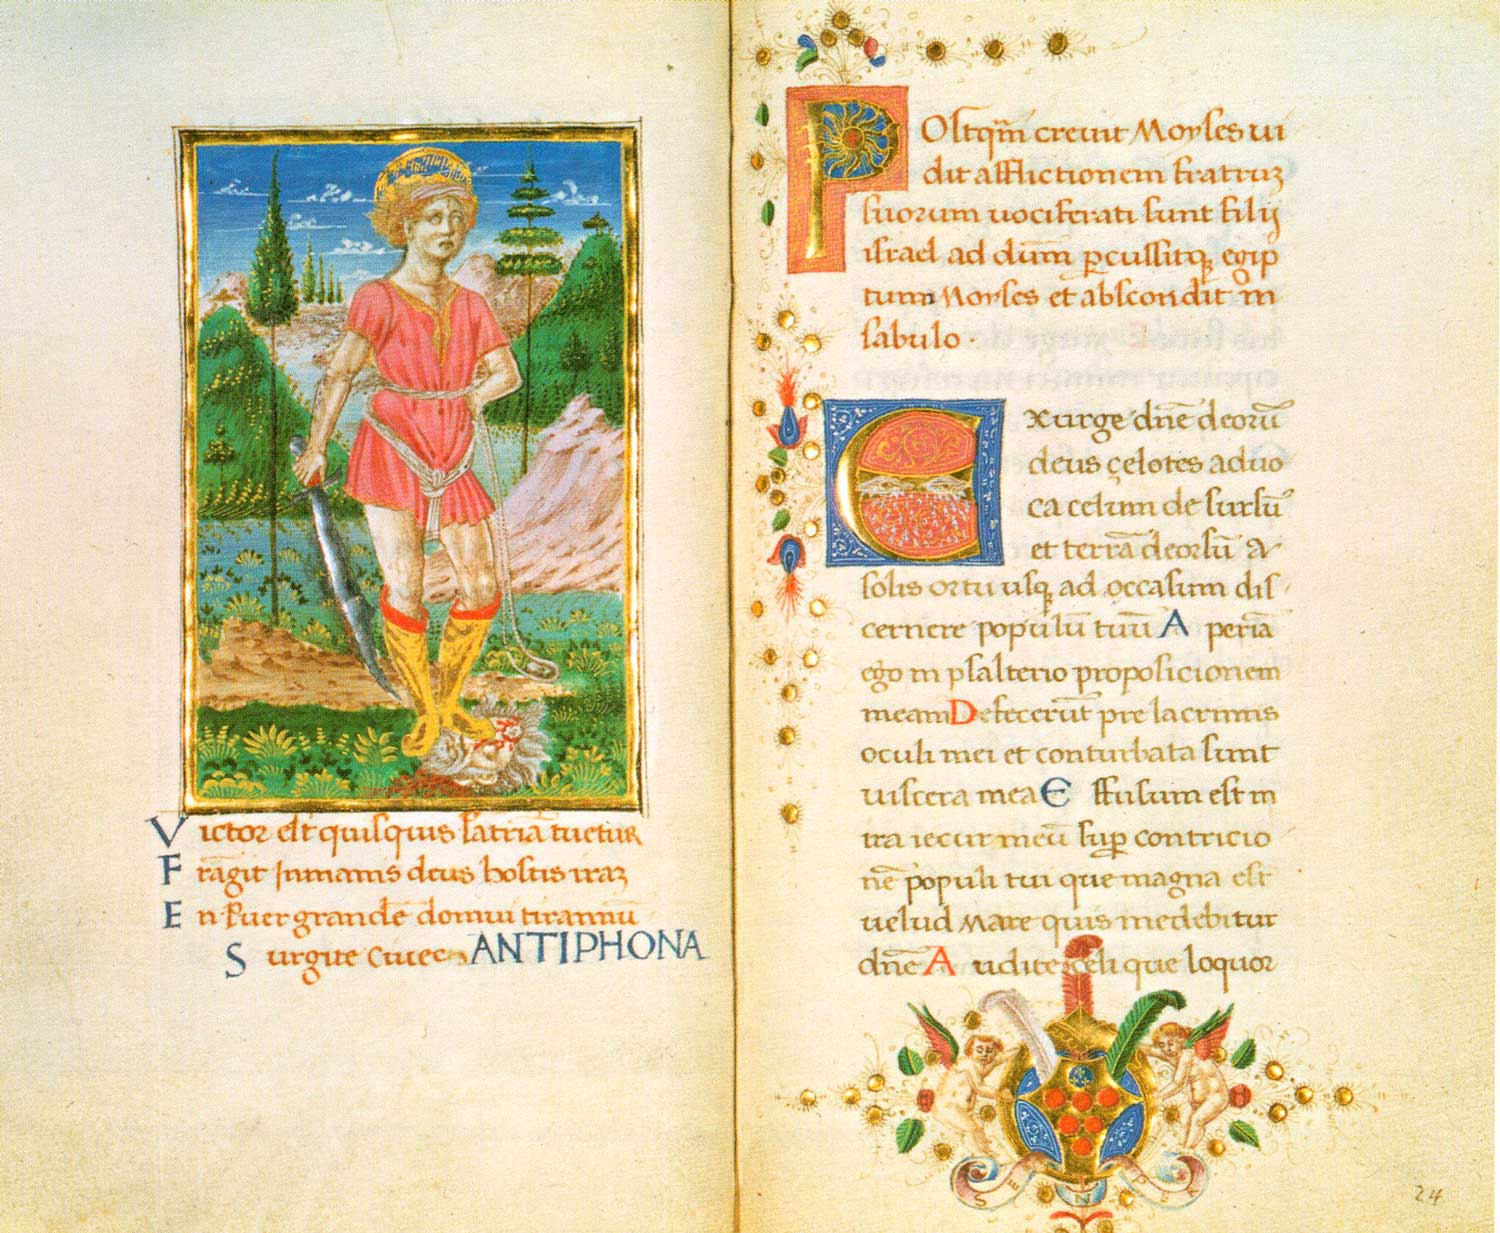 Victor est quisquis patriā tuetur
Frāgit Inmanis deus hostis iraz
En puer grandē domui tirannū
Surgite Ciues ANTIPHONA
POstq̄m crevit Moyses ui
dit afflictionem fratruz
suorum uociferati sunt filij
israel ad dūm ꝑcussitqꝫ egip
tum Moyses et abscondit in
sabulo.
Exurge dn̄e deorū
deus çelotes aduo
ca celum de sursū
et terrā deorsū A
solis ortu usqꝫ ad occasum dis
cernere populū tuū A periā
ego in psalterio proposicionem
meam Defecerūt pre lacrimis
oculi mei et conturbata sunt
uiscera mea Effusum est in
tra iecur meū suꝑ contricio
nē populi tui que magna est
uelud Mare quis medebitur
dn̄e Audite celi que loquor
SENPER
24